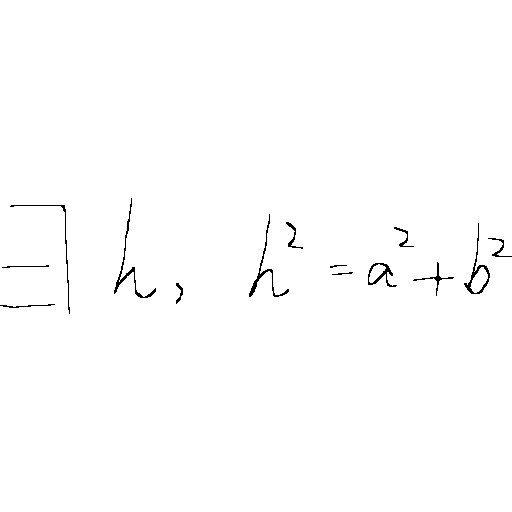 ∃ h, h² = a² + b²